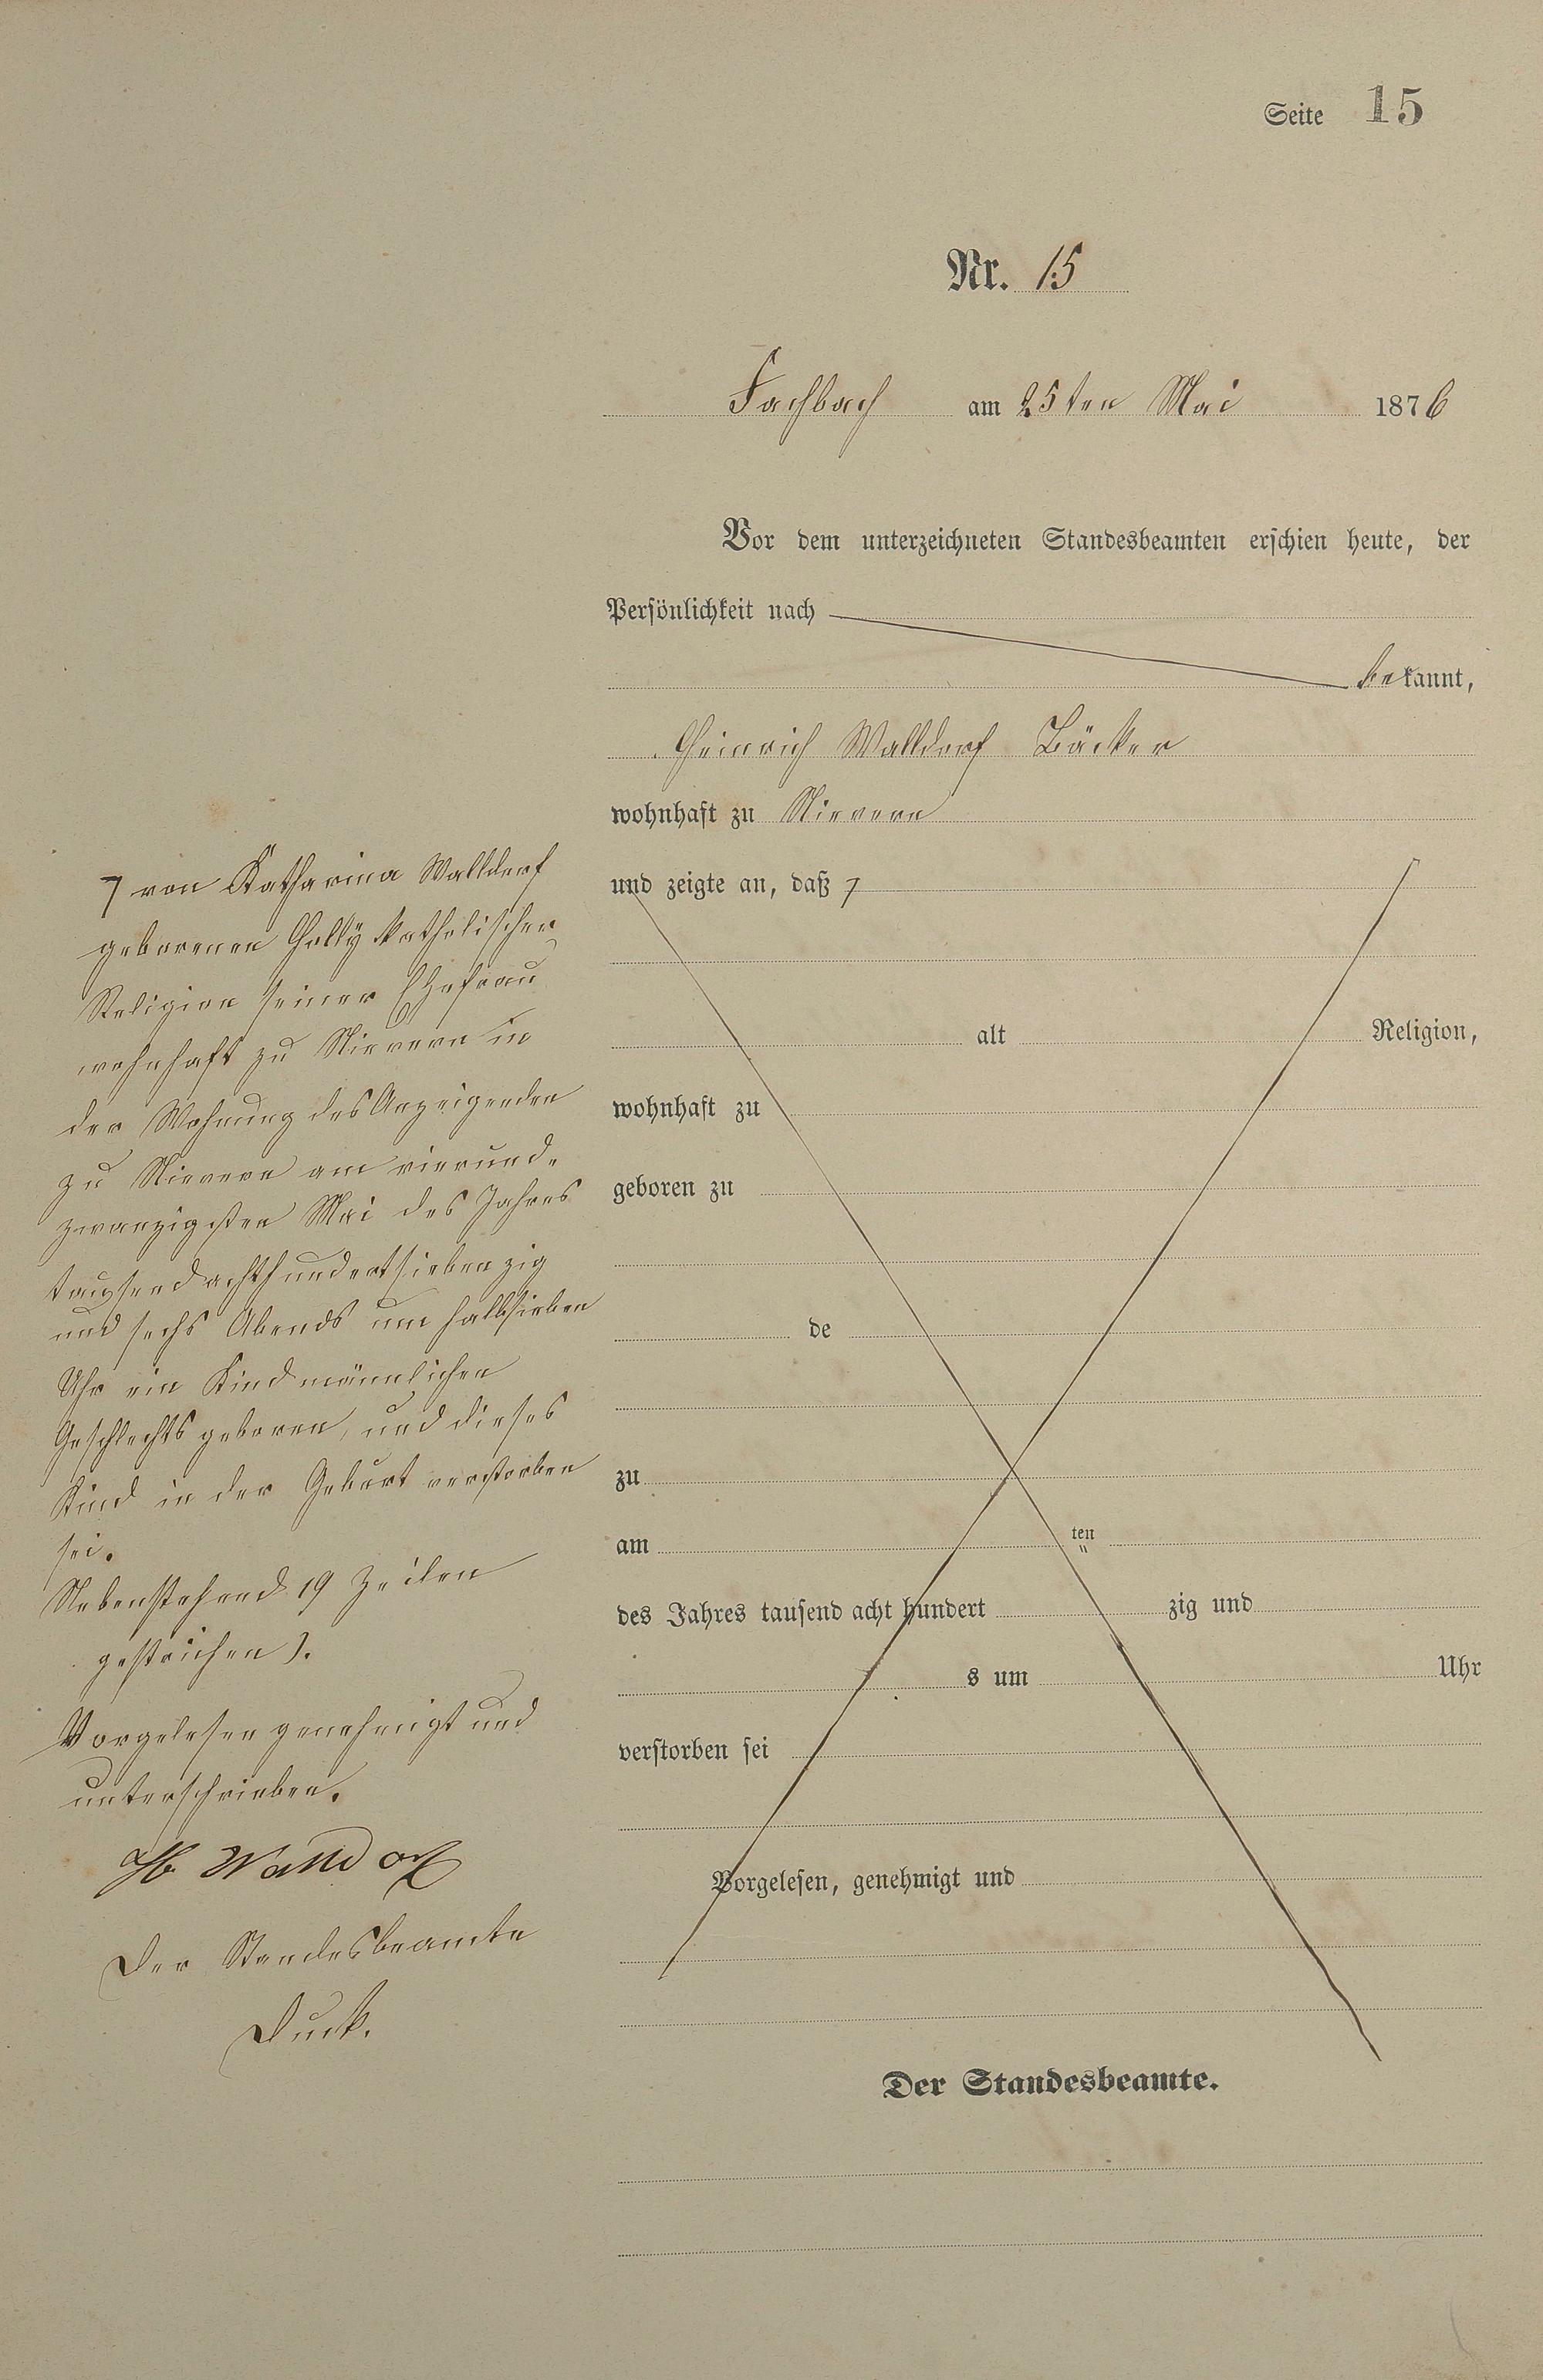 Seite 15
Nr. 15
Fachbach am 25ten Mai 1876
Vor dem unterzeichneten Standesbeamten erschien heute, der
Persönlichkeit nach
bekannt,
Heinrich Walldorf Bäcker
wohnhaft zu Nievern
und zeigte an, daß ⁊
alt Religion,
wohnhaft zu
geboren zu
de
zu
am ten
des Jahres tausend acht hundert zig und
s um Uhr
verstorben sei
Vorgelesen, genehmigt und
Der Standesbeamte.
⁊ von Katharina Walldorf
geborenen Holly katholischer
Religion seiner Ehefrau
wohnhaft zu Nievern in
der Wohnung des Anzeigenden
zu Nievern am vierund-
zwanzigsten Mai des Jahres
tausendachthundertsiebenzig
und sechs Abends um halbsieben
Uhr ein Kind männlichen
Geschlechts geboren, und dieses
Kind in der Geburt verstorben
sei.
Nebenstehend 19 Zeilen
gestrichen).
Vorgelesen genehmigt und
unterschrieben.
Hh. Walldorf
Der Standesbeamte
Duck.